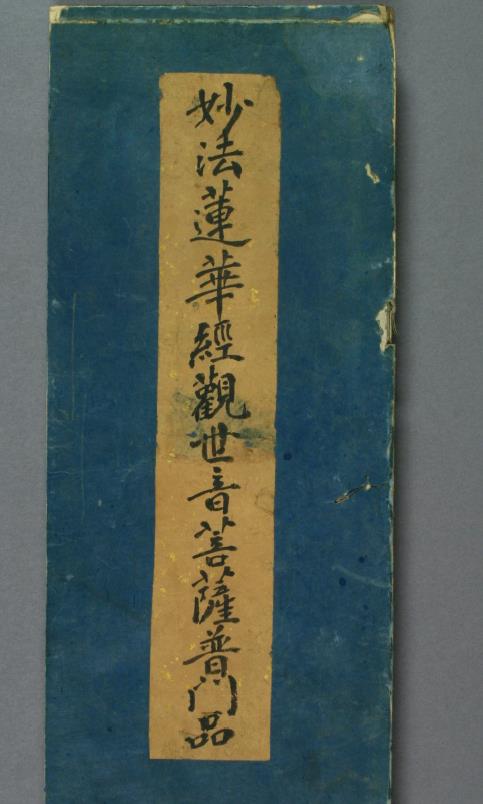 妙法蓮華經觀世音菩薩普门品